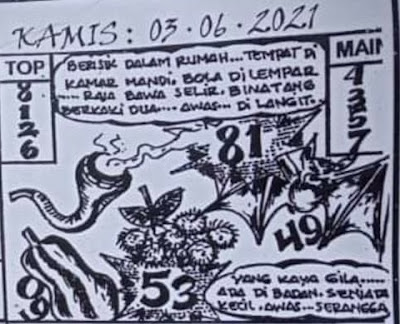 KAMIS : 03 . 06 . 2021
TOP
8
1
2
6
BERISIK DALAM RUMAH... TEMPAT DI
KAMAR MANDI. BOLA DI LEMPAR
..... RAJA BAWA SELIR. BINATANG
BERKAKI DUA..... AWAS... DI LANGIT.
MAIN
4
3
5
7
81
49
53
YANG KAYA GILA.....
ADA DI BADAN. SENJATA
KECIL. AWAS... SERANGGA